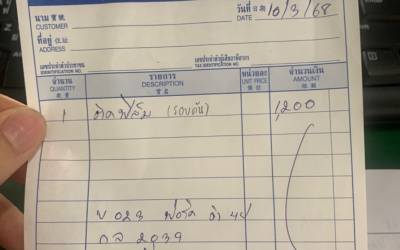 นาม
CUSTOMER
วันที่
DATE 10/3/68
ที่อยู่
ADDRESS
เลขประจำตัวประชาชน
IDENTIFICATION NO.
เลขประจำตัวผู้เสียภาษีอากร
TAX IDENTIFICATION NO.
จำนวน รายการ หน่วยละ จำนวนเงิน
QUANTITY DESCRIPTION UNIT PRICE AMOUNT
1 ติดฟิล์ม (รอบคัน) 1,200
ฟอร์ด ดำ 4ป
กล 2039